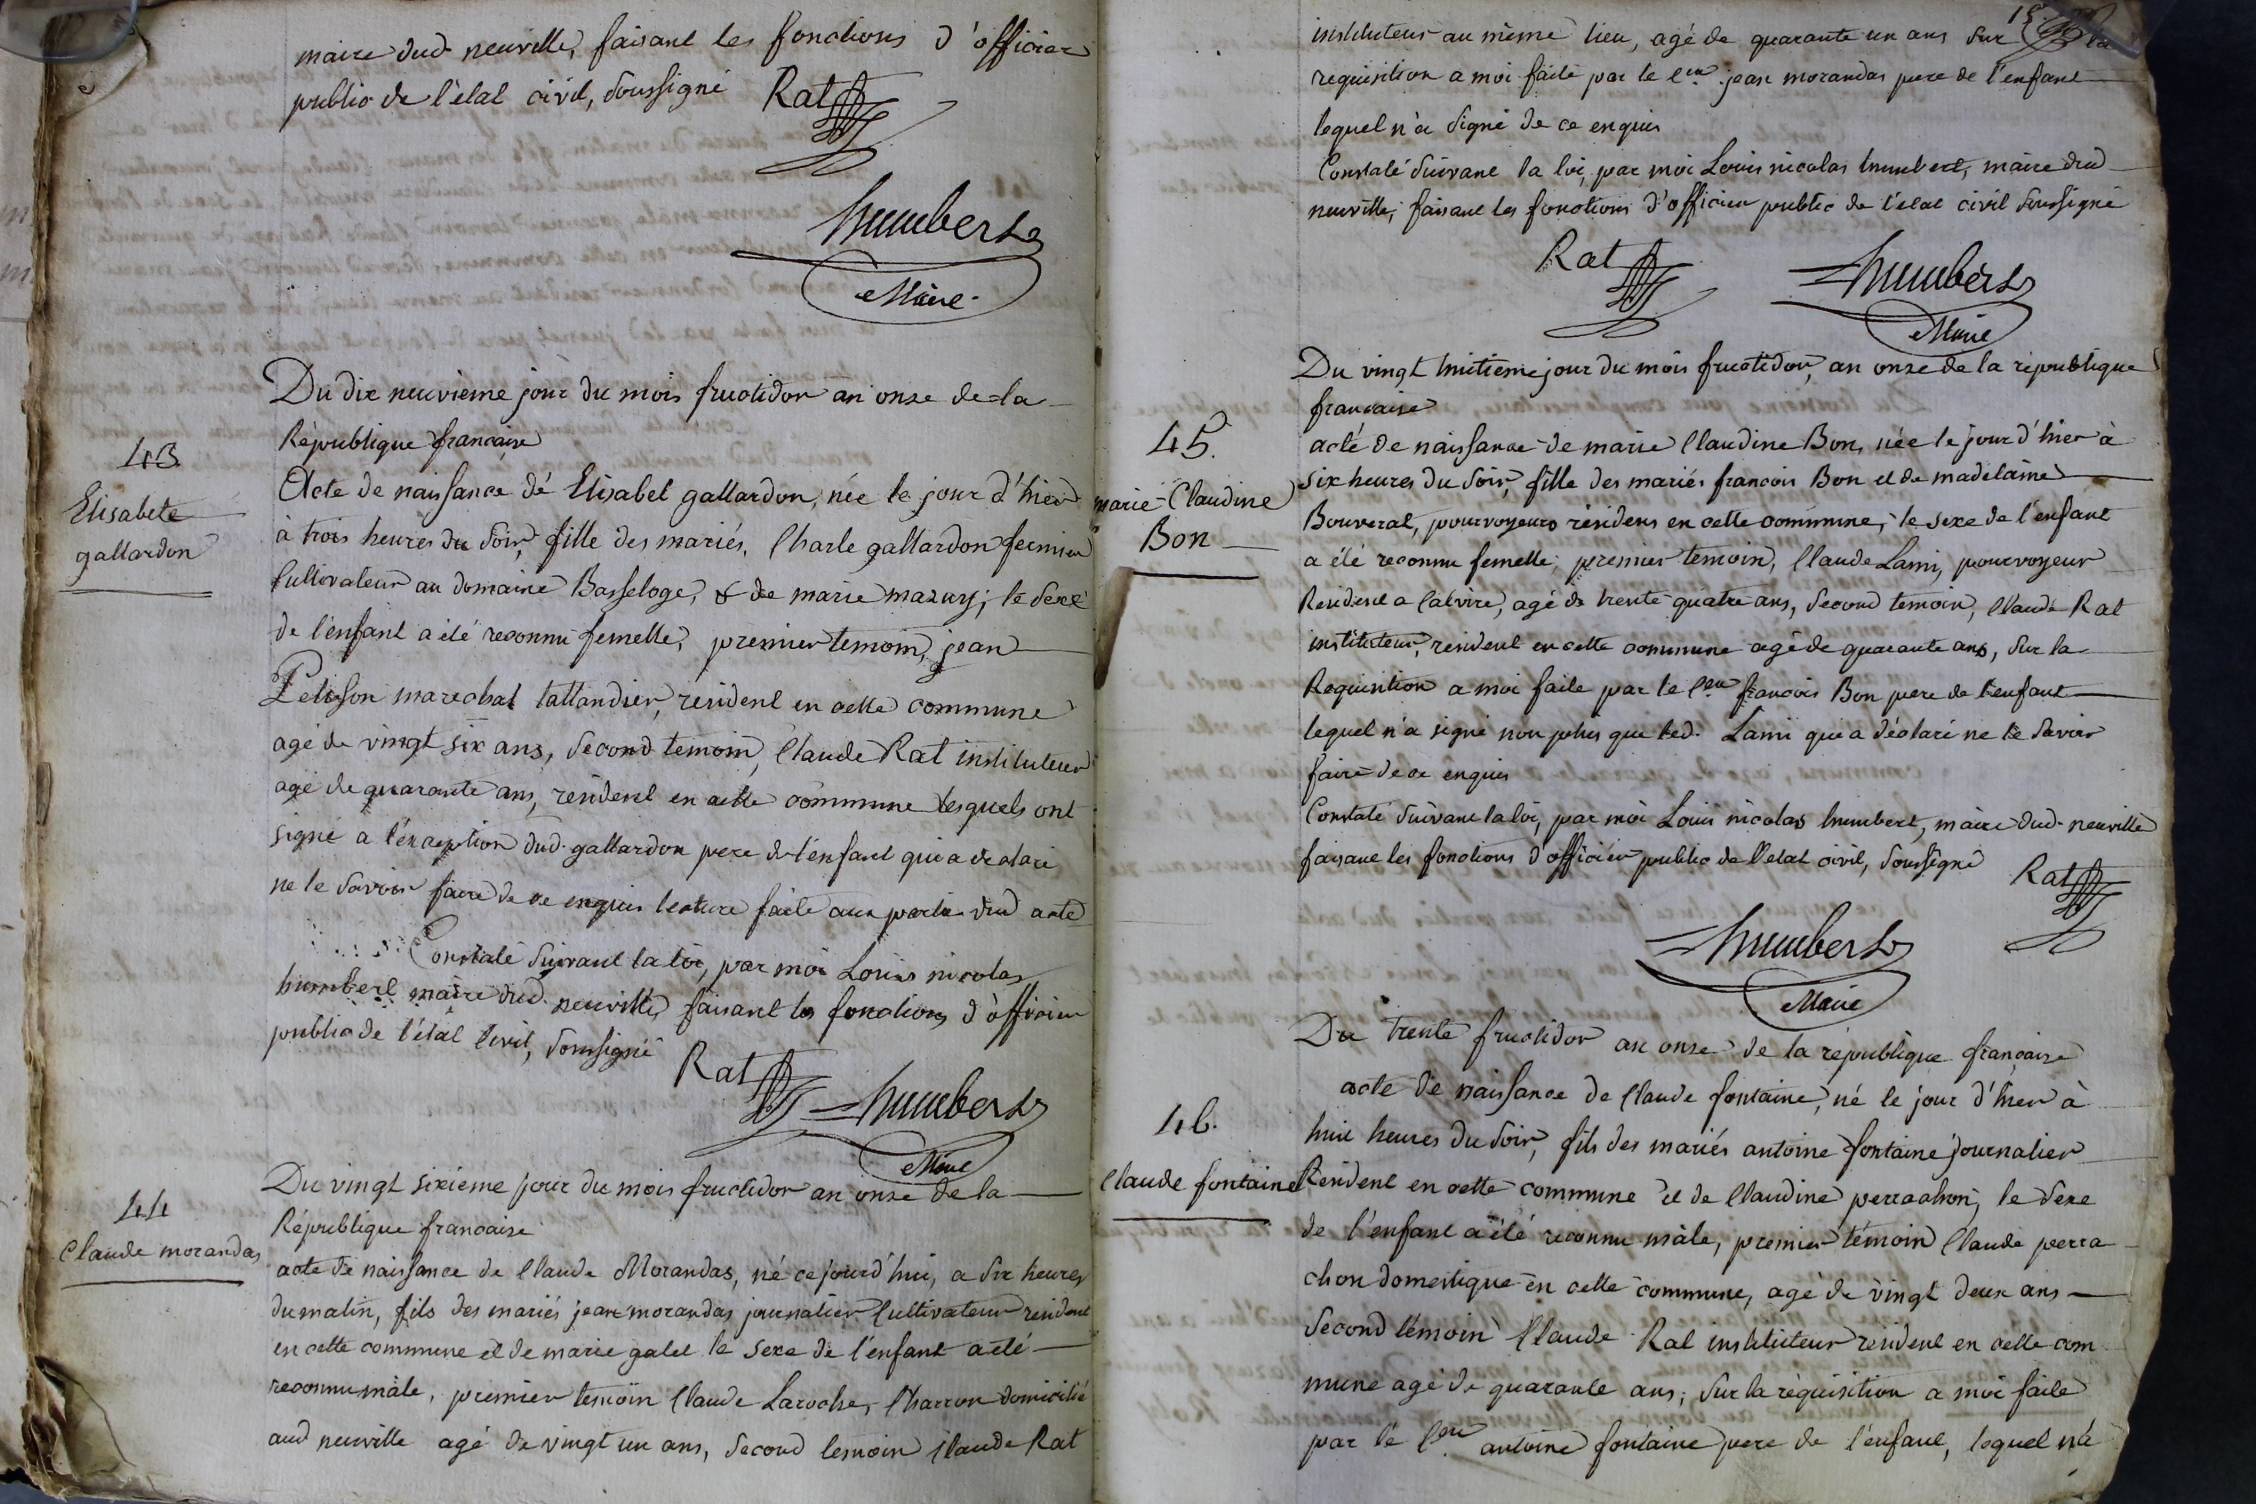 maire dud neuville, faisant les fonctions d'officier
public de l'état civil, soussigné Rat
humbert
Maire
Du dix neuvieme jour du mois fructidor an onze de la
République francaise
43
Elisabete
gallardon
Acte de naissance dé Elisabet gallardon, née le jour d'hier
à trois heures du soir, fille des mariés, Charle gallardon fermier
Cultivateur au domaine Basseloge, & de marie mazuy; le sexe
de l'enfant a été reconnu femelle, premier temoin, jean
Pelisson marechal tallandier, resident en cette commune
agé de vingt six ans, second temoin, Claude Rat instituteur
agé de quarante ans, résident en cette commune lesquels ont
signé a l'éxception dud. gallardon pere de l'énfant qui a declaré
ne le savoir faire de ce enquis lecture faite aux partie dud acte
Constaté suivant la loi, par moi Louis nicolas
humbert maire dud. neuville, faisant les fonctions d'officier
public de l'état Civil, soussigné
Rat humbert
Maire
Du vingt sixieme jour du mois fructidor an onze de la
44
Claude morandas
République francaise
acte de naissance de Claude Morandas, né ce jourd'hui, a six heures
du matin, fils des mariés jean morandas journalier Cultivateur résident
en cette commune et de marie galet le sexe de l'enfant a été
reconnu mâle, premier temoin Claude Laroche, Charron domicilié
aud neuville agé de vingt un ans, second temoin Claude Rat
15
instituteur au même lieu, agé de quarante un ans sur la
requisition a moi faite par le Cen. jean morandas pere de l'enfant
lequel n'a signé de ce enquis
Constaté suivant la loi, par moi Louis nicolas humbert, maire dud
neuville, faisant les fonctions d'officier public de l'état civil soussigné
Rat humbert
Maire
Du vingt huitieme jour du mois fructidor, an onze de la république
francaise
45.
marie-Claudine
Bon
acté de naissance de marie Claudine Bon, née le jour d'hier à
six heures du soir, fille des mariés francois Bon et de madelaine
Bouverat, pourvoyeurs résidens en cette commune, le sexe de l'enfant
a été reconnu femelle; premier temoin, Claude Lami, pourvoyeur
Resident a Calvire, agé de trente quatre ans, second temoin, Claude Rat
instituteur, résident en cette commune agé de quarante ans, sur la
Requisition a moi faite par le Cen francois Bon pere de l'enfant
lequel n'a signé non plus que led. Lami qui a déclaré ne le savoir
faire de ce enquis
Constaté suivant la loi, par moi Louis nicolas humbert, maire dud. neuville
faisant les fonctions d'officier public de l'etat civil, soussigné Rat
humbert
Maire
Du trente fructidor an onze de la république francaise
46.
Claude fontaine
acte de naissance de Claude fontaine, né le jour d'hier à
huit heures du soir, fils des mariés antoine fontaine journalier
Resident en cette commune et de Claudine perrachon, le sexe
de l'enfant a été reconnu mâle, premier témoin Claude perra
chon domestique en cette commune, agé de vingt deux ans
second témoin Claude Rat instituteur résident en cette com
mune agé de quarante ans, sur la réquisition a moi faite
par le Cen antoine fontaine pere de l'enfant, lequel n'a